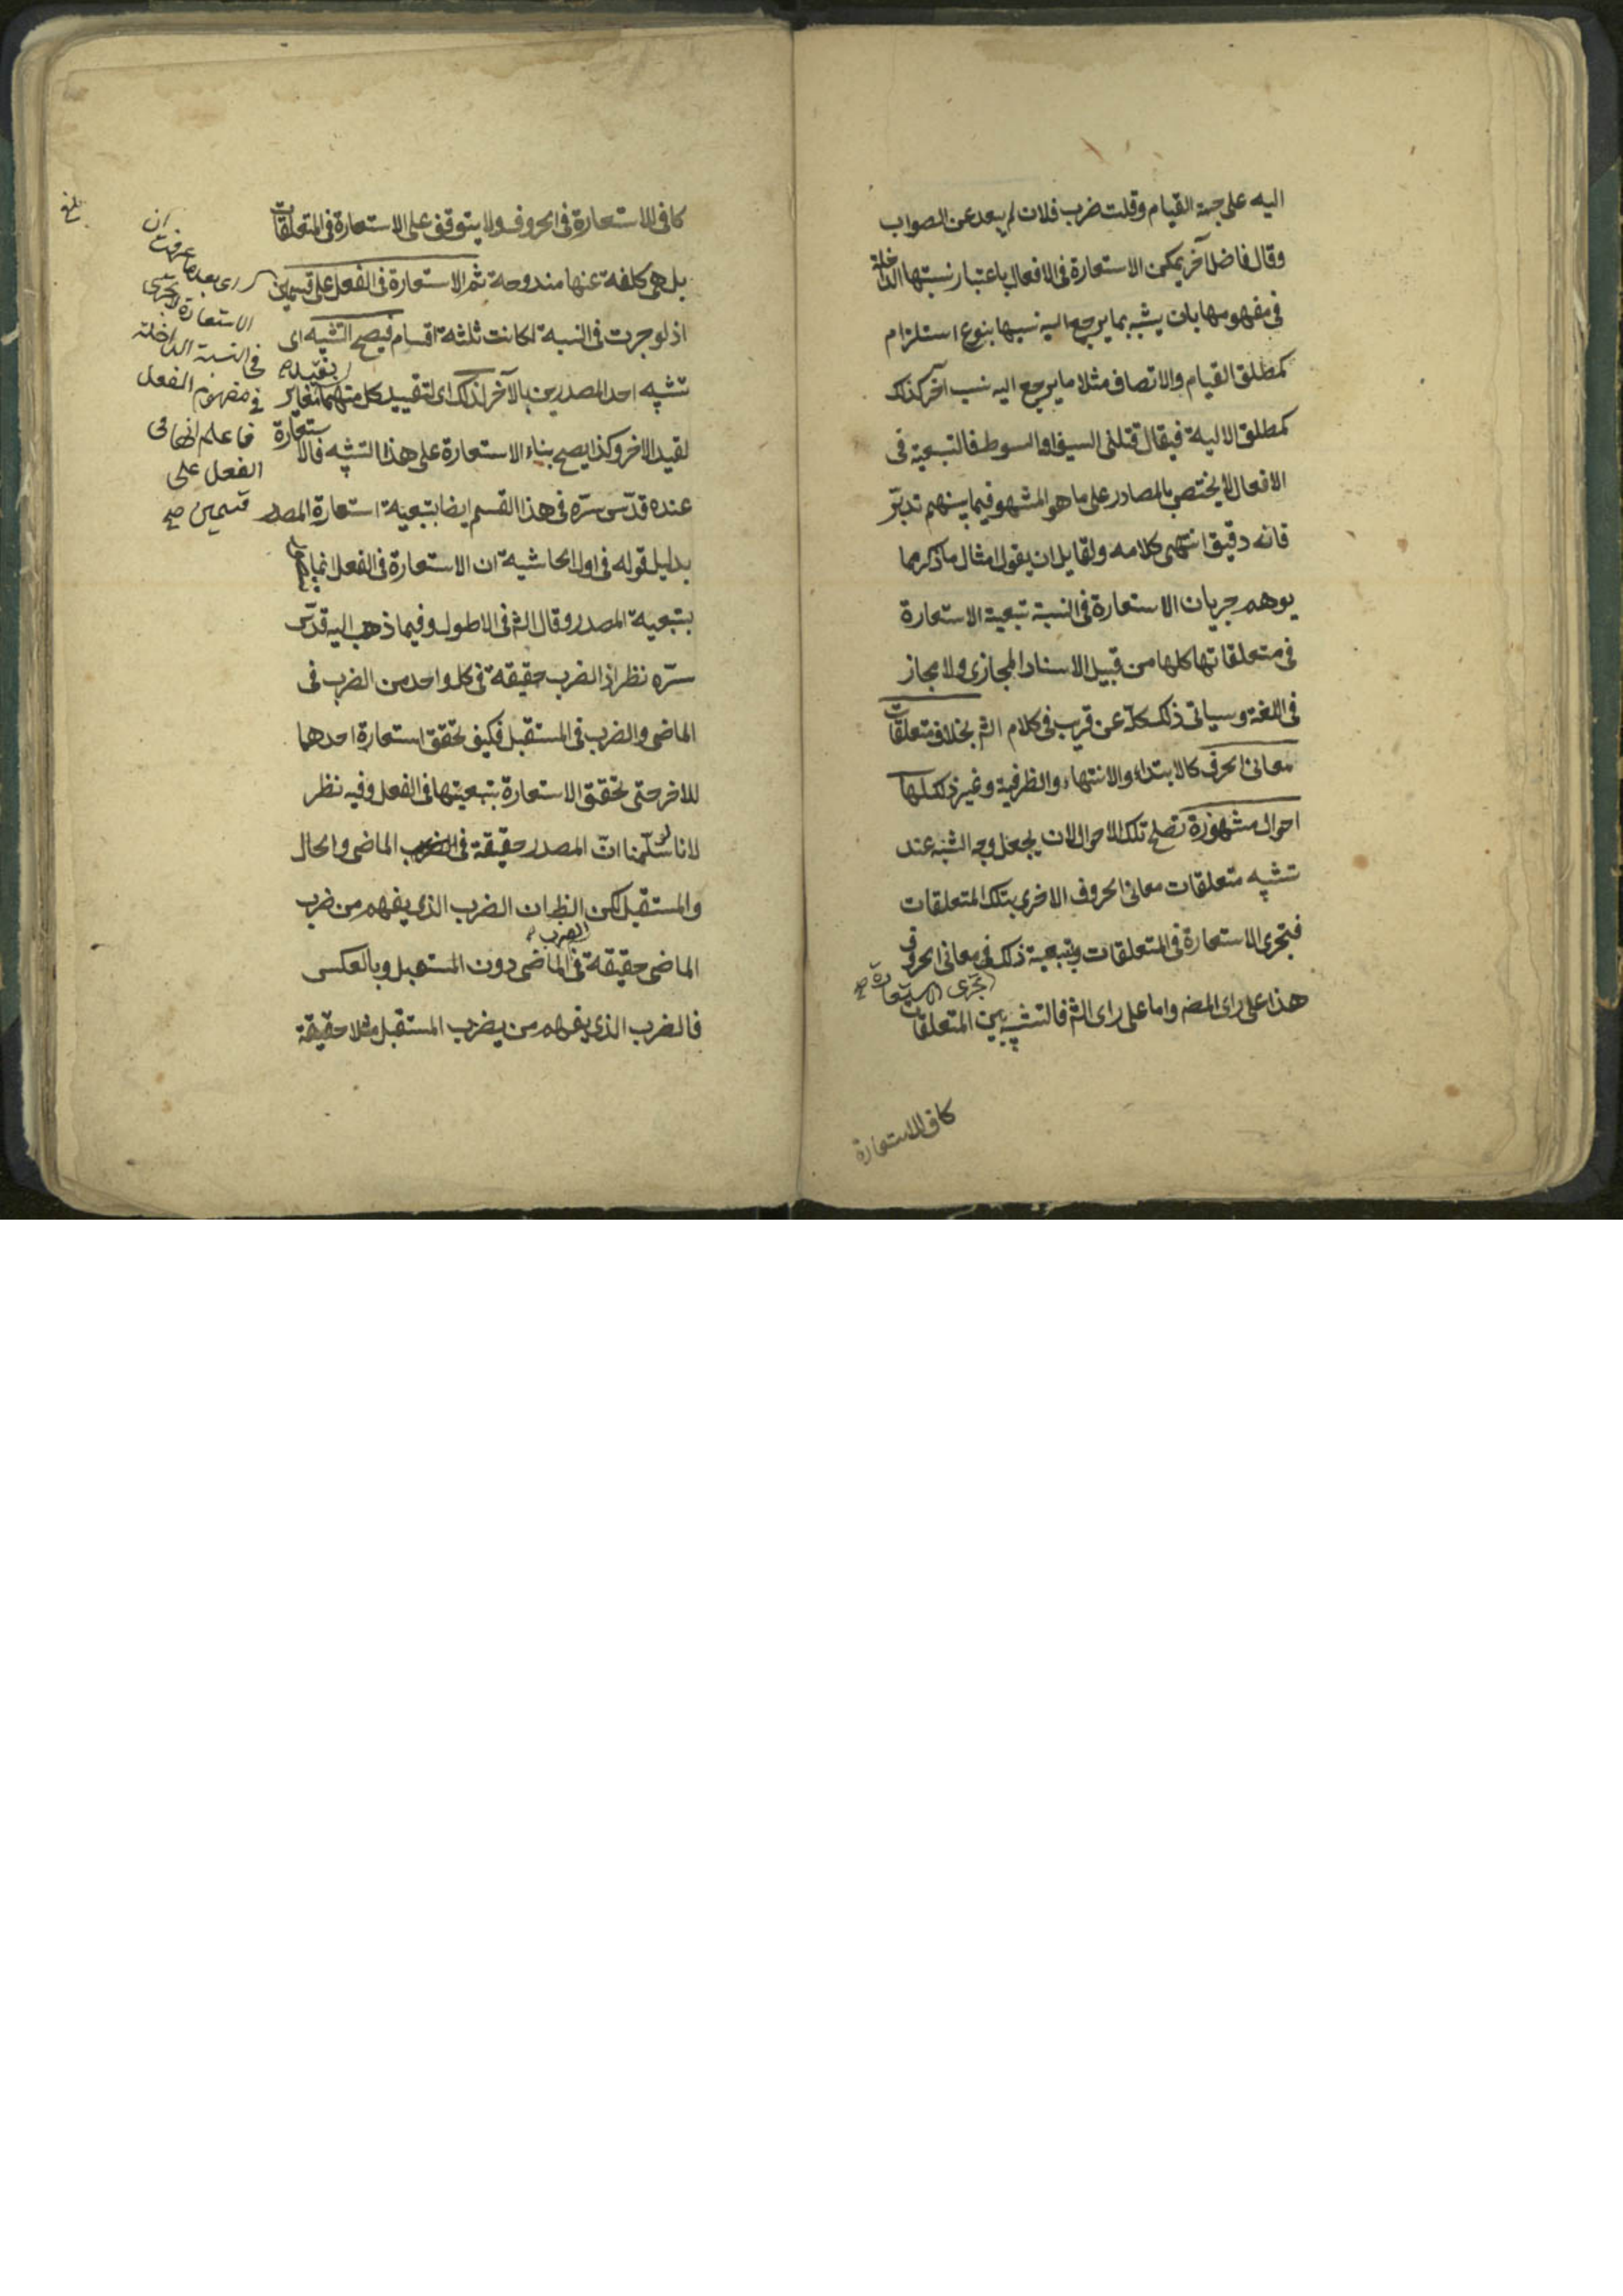 اليه على جهة القيام وقلت ضرب فلان لم يبعد عن الصواب
وقال فاضل آخر يمكن الاستعارة فى الافعال باعتبار نسبتها الداخلة
فى مفهومها بان يشبه بما يرجع اليه نسبها بنوع استلزام
كمطلق القيام والاتصاف مثلا ما يرجع اليه نسب آخر كذلك
كمطلق الالية فيقال قتلنى السيف او السوط فالتبعية فى
الافعال لا يختص بالمصادر على ما هو المشهور فيما بينهم تدبّر
فانه دقيق انتهى كلامه ولقايل ان يقول امثال ما ذكر مما
يوهم جريان الاستعارة فى النسبة تبعية الاستعارة
فى متعلقاتها كلها من قبيل الاسناد المجازى ولا مجاز
فى اللغة وسياتى ذلك كله عن قريب فى كلام الشم بخلاف متعلقات
معانى الحرف كالابتداء والانتهاء والظرفية وغير ذلك لها
احوال مشهورة تصلح تلك الاحوال لان يجعل وجه الشبه عند
تشبيه متعلقات معانى الحروف الاخرى بتلك المتعلقات
فتجرى الاستعارة فى المتعلقات وبتبعية ذلك فى معانى الحروف
تجرى الاستعارة صح
هذا على راى المضه واما على راى الشم فالتشبيه بين المتعلقات
كاف للاستعارة
كافى للاستعارة فى الحروف ولا يتوقف على الاستعارة فى المتعلقات
بل هى كلفة عنها مندوحة ثم الاستعارة فى الفعل على قسمين
اذ لو جرت فى النسبة لكانت ثلثة اقسام فيصح التشبيه اى
تشبيه احد المصدرين بالآخر لذلك اى لتقييد كل منهما بقيد مغاير
لقيد الاخر وكذا يصح بناء الاستعارة على هذا التشبيه فالاستعارة
عنده قدّس سرّه فى هذا القسم ايضا بتبعية استعارة المصدر
بدليل قوله فى اول الحاشية ان الاستعارة فى الفعل انما
بتبعية المصدر وقال الشم فى الاطول وفيما ذهب اليه قدّس
سرّه نظر اذ الضرب حقيقة فى كل واحد من الضرب فى
الماضى والضرب فى المستقبل فكيف تحقق استعارة احدهما
للاخر حتى تحقق الاستعارة بتبعيتها فى الفعل وفيه نظر
لانا لو سلّمنا انّ المصدر حقيقة فى الضرب الماضى والحال
والمستقبل لكن الظ ان الضرب الذى يفهم من ضرب
الماضى حقيقة فى الضرب الماضى دون المستقبل وبالعكس
فالضرب الذى يفهم من يضرب المستقبل مثلا حقيقة
اى بعد ما عرفت ان
الاستعارة لا تجرى
فى النسبة الداخلة
فى مفهوم الفعل
فاعلم انها فى
الفعل على
قسمين صح
بلغ